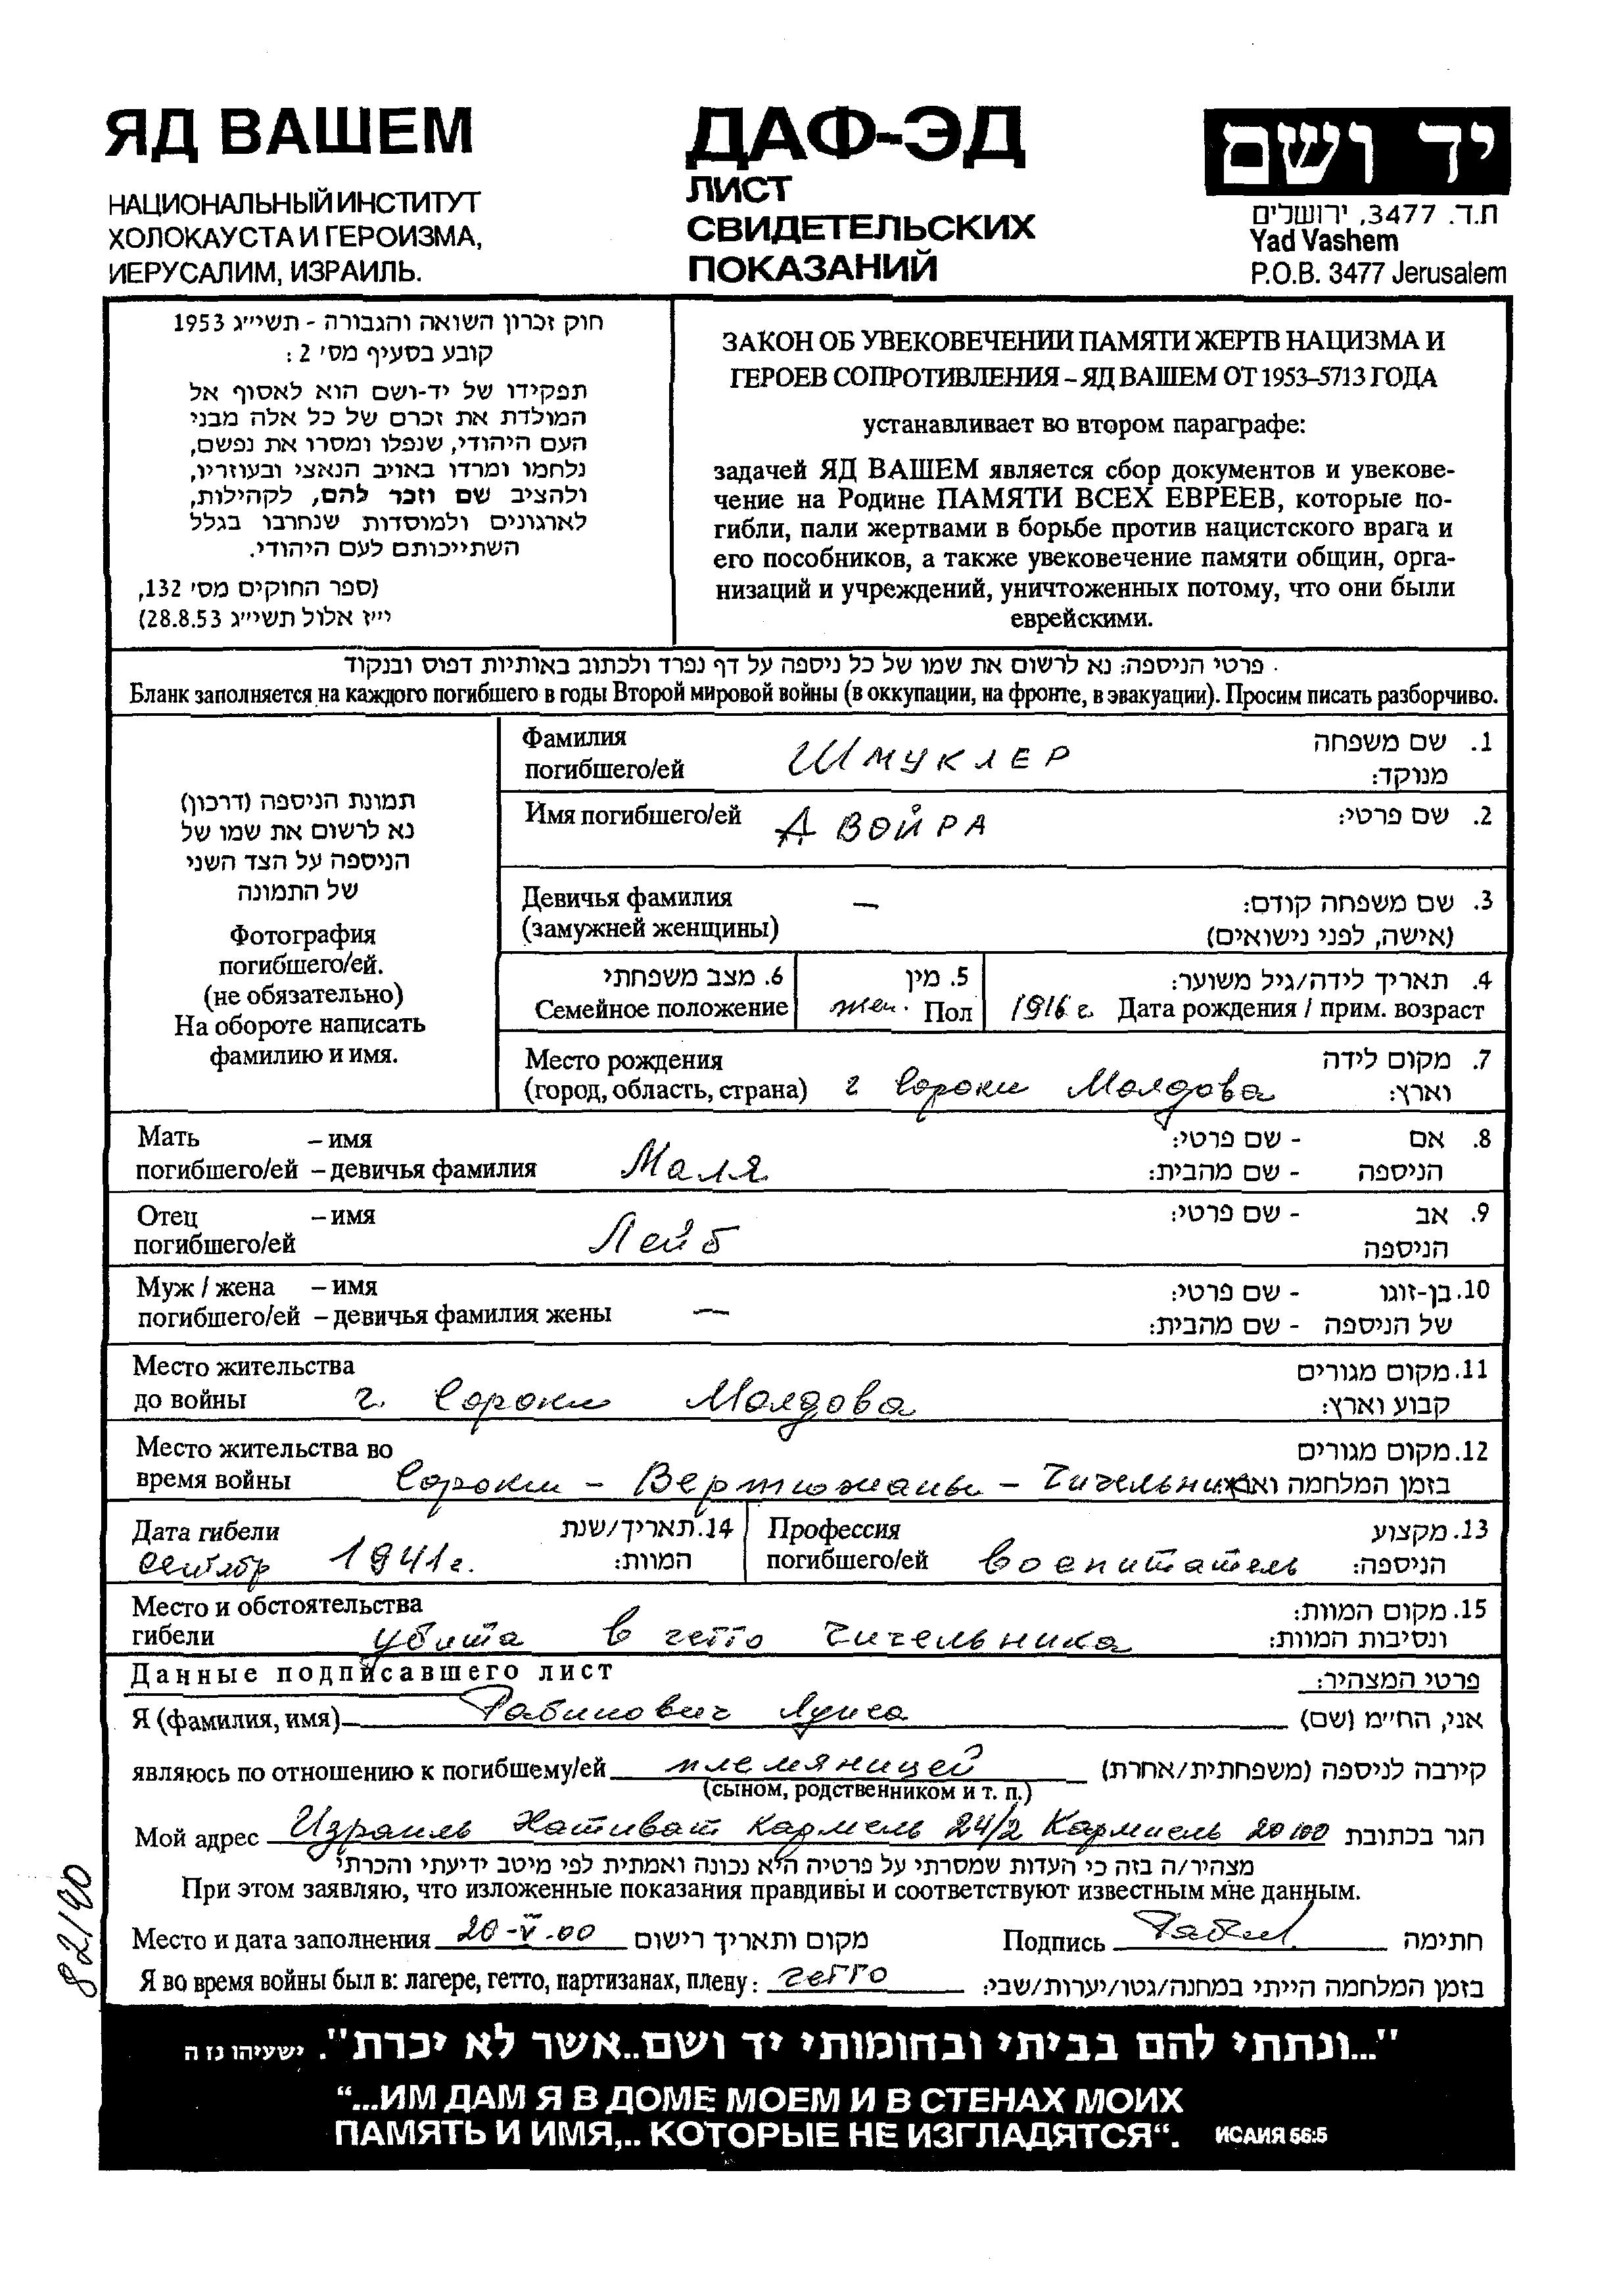 ЯД ВАШЕМ
НАЦИОНАЛЬНЫЙ ИНСТИТУТ
ХОЛОКАУСТА И ГЕРОИЗМА,
ИЕРУСАЛИМ, ИЗРАИЛЬ.
ДАФ-ЭД
ЛИСТ
СВИДЕТЕЛЬСКИХ
ПОКАЗАНИЙ
יד ושם
ת.ד. 3477, ירושלים
Yad Vashem
P.O.B. 3477 Jerusalem
חוק זכרון השואה והגבורה - תשי״ג 1953
קובע בסעיף מס׳ 2 :
תפקידו של יד-ושם הוא לאסוף אל
המולדת את זכרם של כל אלה מבני
העם היהודי, שנפלו ומסרו את נפשם,
נלחמו ומרדו באויב הנאצי ובעוזריו,
ולהציב שם וזכר להם, לקהילות,
לארגונים ולמוסדות שנחרבו בגלל
השתייכותם לעם היהודי.
(ספר החוקים מס׳ 132,
י״ז אלול תשי״ג 28.8.53)
ЗАКОН ОБ УВЕКОВЕЧЕНИИ ПАМЯТИ ЖЕРТВ НАЦИЗМА И
ГЕРОЕВ СОПРОТИВЛЕНИЯ – ЯД ВАШЕМ ОТ 1953–5713 ГОДА
устанавливает во втором параграфе:
задачей ЯД ВАШЕМ является сбор документов и увекове-
чение на Родине ПАМЯТИ ВСЕХ ЕВРЕЕВ, которые по-
гибли, пали жертвами в борьбе против нацистского врага и
его пособников, а также увековечение памяти общин, орга-
низаций и учреждений, уничтоженных потому, что они были
еврейскими.
פרטי הניספה: נא לרשום את שמו של כל ניספה על דף נפרד ולכתוב באותיות דפוס ובנקוד
Бланк заполняется на каждого погибшего в годы Второй мировой войны (в оккупации, на фронте, в эвакуации). Просим писать разборчиво.
תמונת הניספה (דרכון)
נא לרשום את שמו של
הניספה על הצד השני
של התמונה
Фотография
погибшего/ей.
(не обязательно)
На обороте написать
фамилию и имя.
Фамилия 1. שם משפחה
погибшего/ей Шмуклер מנוקד:
Имя погибшего/ей Двойра 2. שם פרטי:
Девичья фамилия — 3. שם משפחה קודם:
(замужней женщины) (אישה, לפני נישואים)
6. מצב משפחתי 5. מין 4. תאריך לידה/גיל משוער:
Семейное положение жен. Пол 1916 г. Дата рождения / прим. возраст
Место рождения 7. מקום לידה
(город, область, страна) г Сороки Молдова וארץ:
Мать – имя 8. אם - שם פרטי:
погибшего/ей – девичья фамилия Маля הניספה - שם מהבית:
Отец – имя 9. אב - שם פרטי:
погибшего/ей Лейб הניספה
Муж / жена – имя 10. בן-זוגו - שם פרטי:
погибшего/ей – девичья фамилия жены — של הניספה - שם מהבית:
Место жительства 11. מקום מגורים
до войны г. Сороки Молдова קבוע וארץ:
Место жительства во 12. מקום מגורים
время войны Сороки – Вертюжаны – Чичельник בזמן המלחמה וארץ:
Дата гибели 14. תאריך/שנת Профессия 13. מקצוע
сентябр 1941г. המוות: погибшего/ей воспитатель הניספה:
Место и обстоятельства 15. מקום המוות:
гибели убита в гетто Чичельника ונסיבות המוות:
Данные подписавшего лист פרטי המצהיר:
Я (фамилия, имя) Рабинович Луиса אני, הח״מ (שם)
являюсь по отношению к погибшему/ей племяницей קירבה לניספה (משפחתית/אחרת)
(сыном, родственником и т. п.)
Мой адрес Израиль Хативат Кармель 24/2 Кармиель 20100 הגר בכתובת
מצהיר/ה בזה כי העדות שמסרתי על פרטיה היא נכונה ואמתית לפי מיטב ידיעתי והכרתי
При этом заявляю, что изложенные показания правдивы и соответствуют известным мне данным.
Место и дата заполнения 20-V-00 מקום ותאריך רישום Подпись חתימה
Я во время войны был в: лагере, гетто, партизанах, плену: гетто בזמן המלחמה הייתי במחנה/גטו/יערות/שבי:
82140
"...ונתתי להם בביתי ובחומותי יד ושם..אשר לא יכרת". ישעיהו נז ה
“...ИМ ДАМ Я В ДОМЕ МОЕМ И В СТЕНАХ МОИХ
ПАМЯТЬ И ИМЯ,.. КОТОРЫЕ НЕ ИЗГЛАДЯТСЯ“. ИСАИЯ 56:5